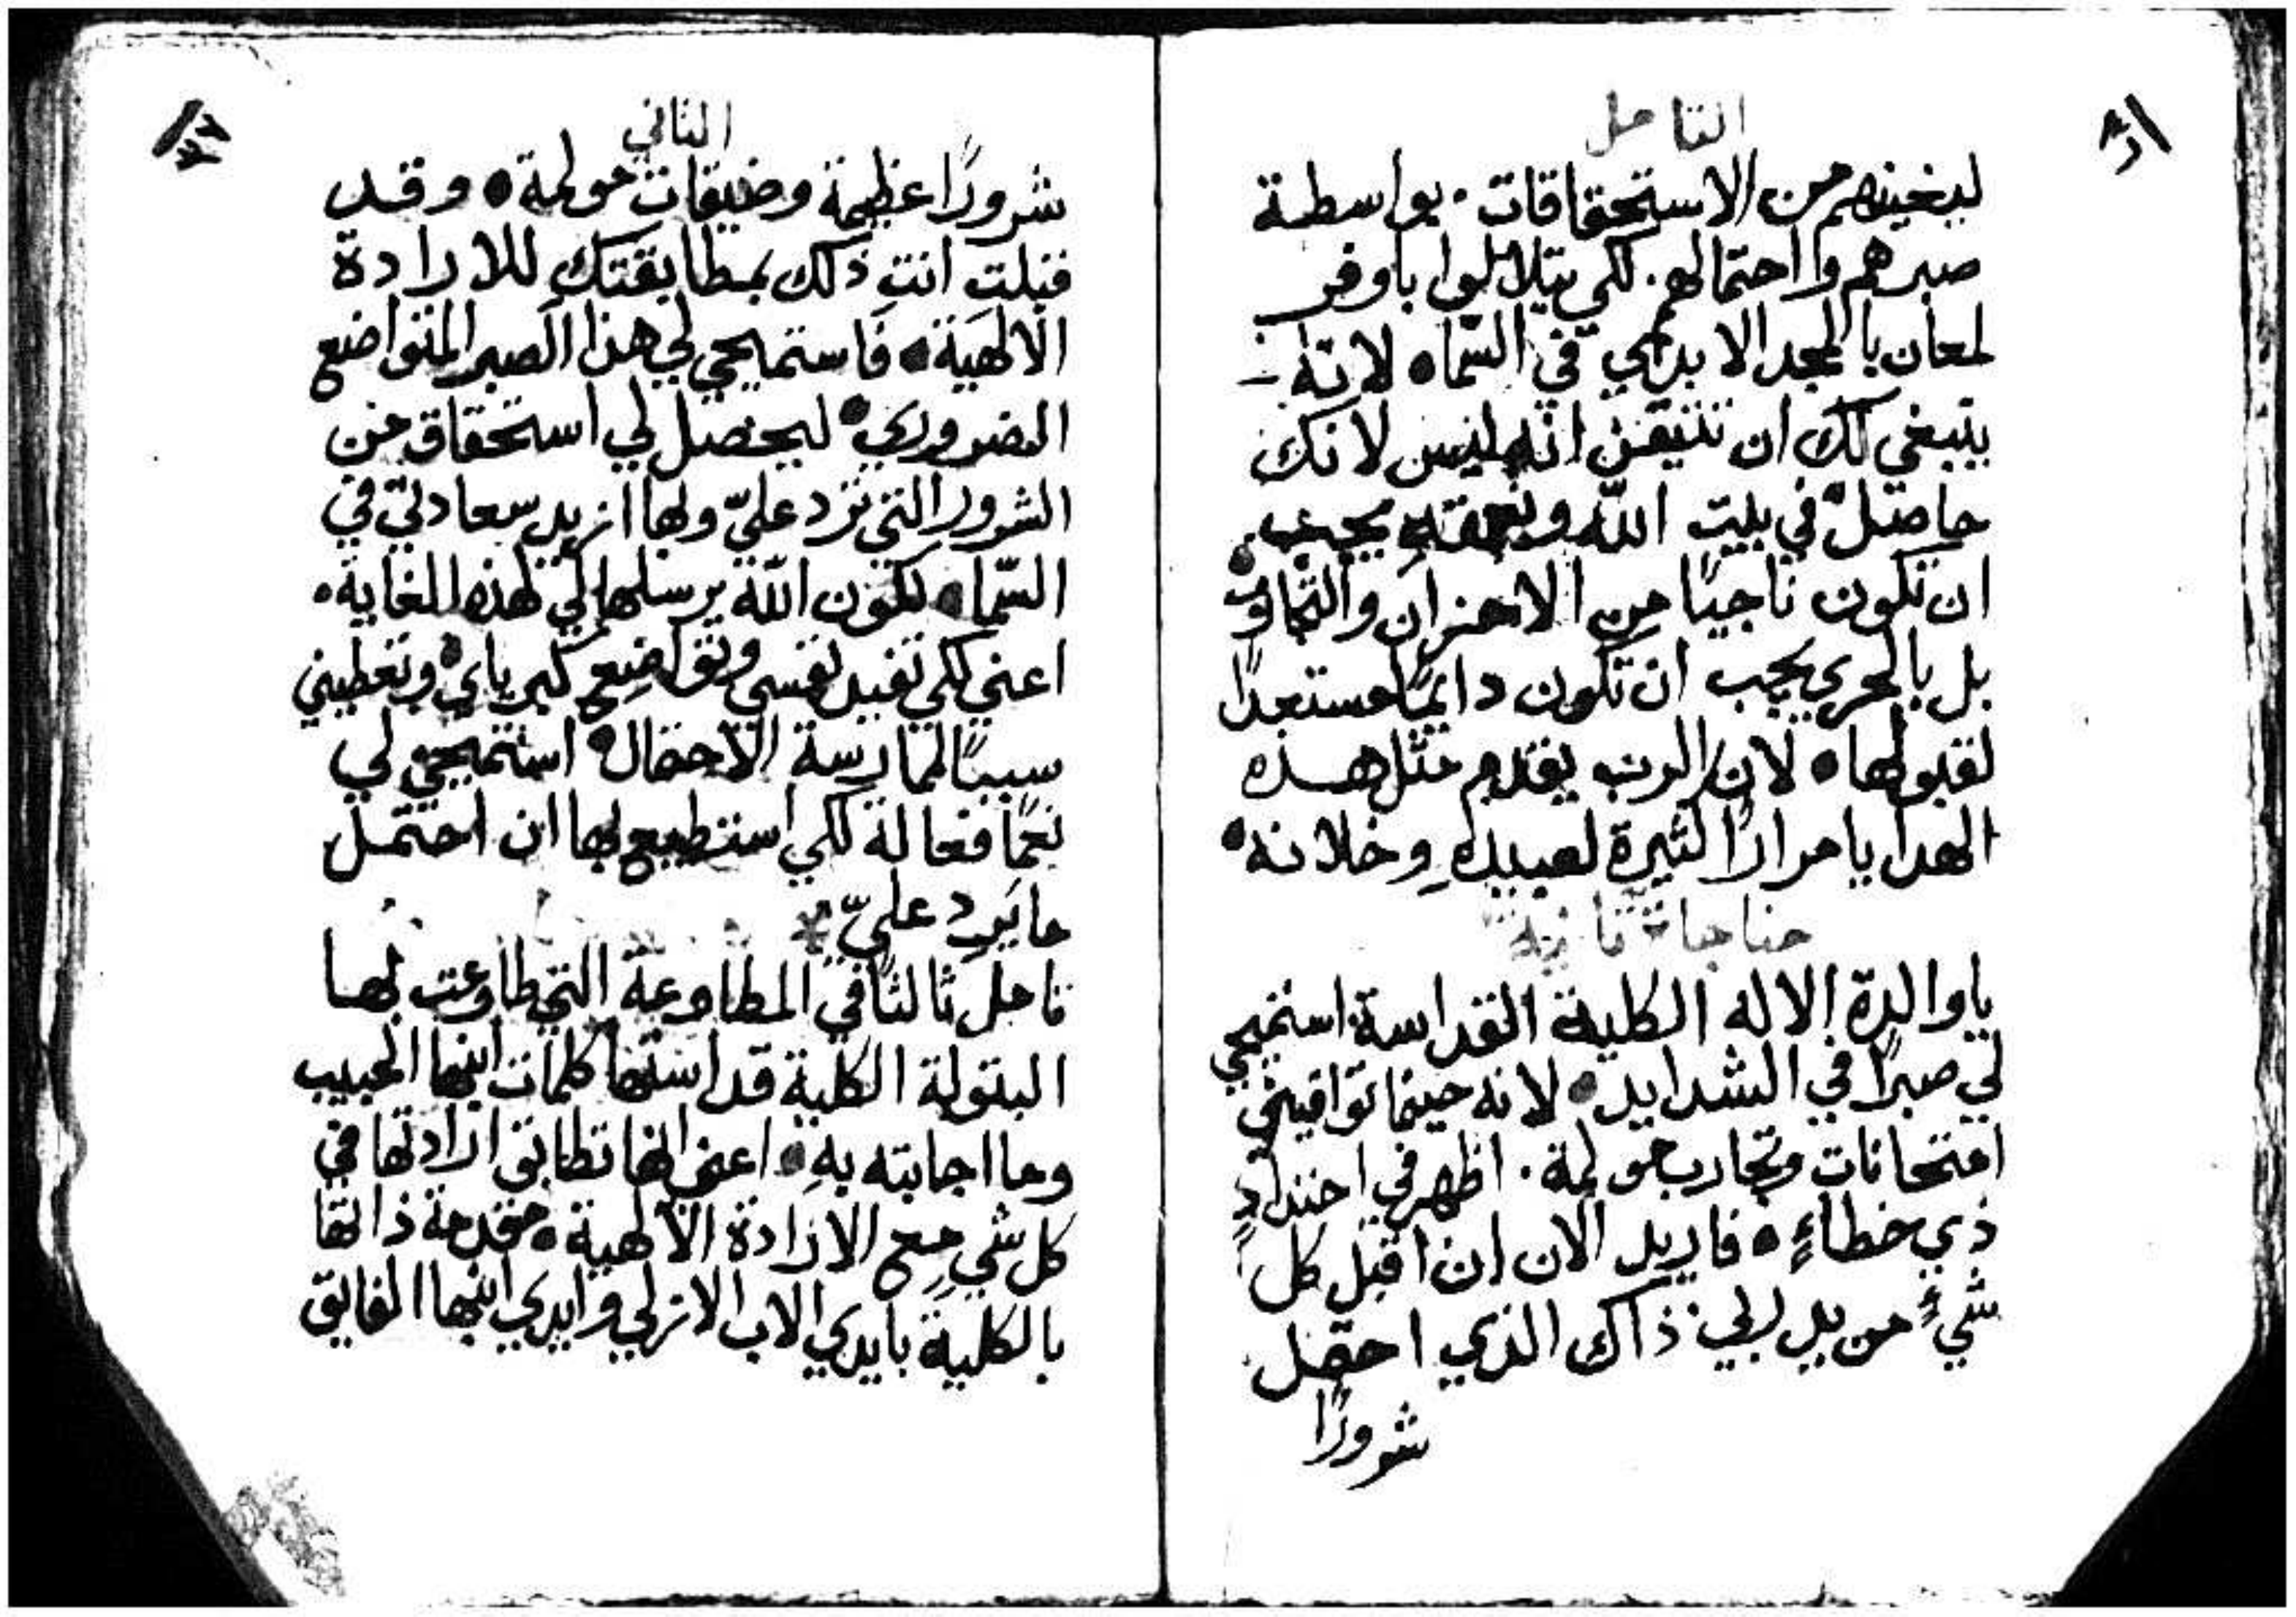 التامل
ليغنيهم من الاستحقاقات. بواسطة
صبرهم واحتمالهم. لكي يتلالوا باوفر
لمعان بالمجد الابدي في السّما. لانّه
ينبغي لك ان تتيقن انّه ليس لانك
حاصلٌ في بيت اللّه وبنعمته يجب
ان تكون ناجيًا من الاحزان والتجارب
بل بالحري يجب ان تكون دايمًا مستعدًا
لقبولها. لان الرب يقدم مثل هذه
الهدايا مرارًا كثيرة لعبيدهِ وخلانه.
مناجاة ثانية
يا والدة الاله الكلية القداسة استميحي
لي صبرًا في الشدايد. لانه حينما توافيني
امتحانات وتجارب مولمة. اظهر في احتدادٍ
ذي خطاءٍ. فاريد الان ان اقبل كل
شيءٍ من يد ربي ذاك الذي احتمل
شرورًا
الثاني
شرورًا عظيمة وضيقات مولمة. وقد
قبلتِ انتِ ذلك بمطابقتك للارادة
الالهيَة. فاستميحي لي هذا الصبر المتواضع
الضروري. ليحصل لي استحقاق من
الشرور التي ترد عليّ ولها ازيد سعادتي في
السّما. لكون اللّه يرسلها لي لهذه الغاية.
اعني لكي تفيد نفسي وتواضع كبرياي. وتعطيني
سببًا لممارسة الاحتمال. استميحي لي
نعمًا فعالة لكي استطيع بها ان احتمل
ما يَرِد عليّ *
تامل ثالثًا في المطاوعة التي طاوعت بها
البتولة الكلية قداستها كلمات ابنها الحبيب
وما اجابته بهِ. اعني انها تطابق ارادتها في
كل شي مع الارادة الالهية. مقدمة ذاتها
بالكلية بايدي الاب الازلي وايدي ابنها الفايق